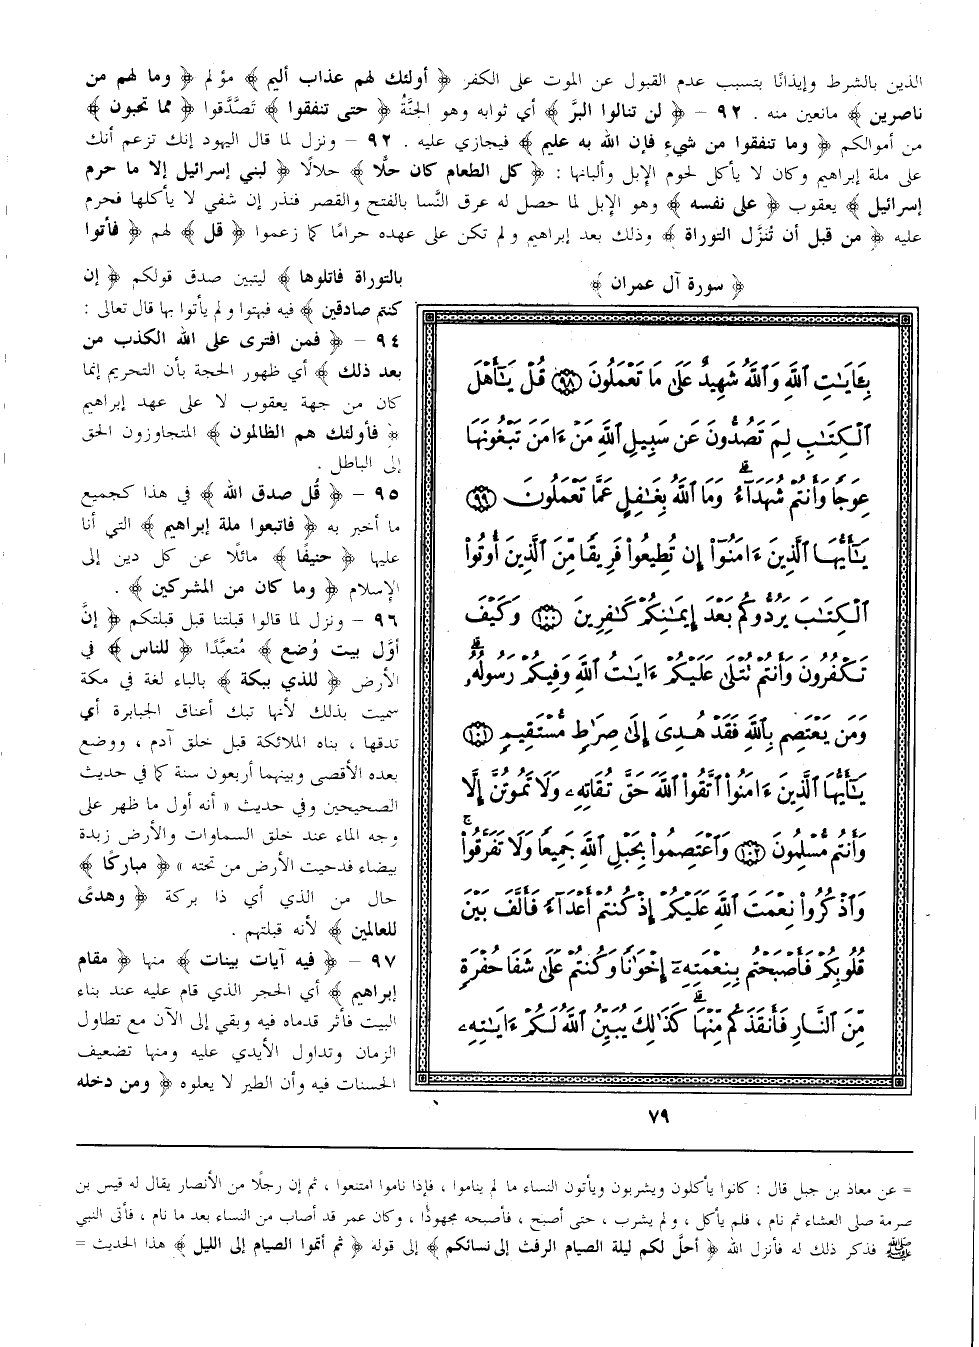 الذين بالشرط وإيذانًا بتسبب عدم القبول عن الموت على الكفر ﴿ أولئك لهم عذاب أليم ﴾ مؤلم ﴿ وما لهم من
ناصرين ﴾ مانعين منه . ٩٢ – ﴿ لن تنالوا البرَّ ﴾ أي ثوابه وهو الجنَّةُ ﴿ حتى تنفقوا ﴾ تَصَّدَّقوا ﴿ مما تحبون ﴾
من أموالكم ﴿ وما تنفقوا من شيءٍ فإن الله به عليم ﴾ فيجازي عليه . ٩٢ – ونزل لما قال اليهود إنك تزعم أنك
على ملة إبراهيم وكان لا يأكل لحوم الإبل وألبانها : ﴿ كل الطعام كان حلًّا ﴾ حلالًا ﴿ لبني إسرائيل إلا ما حرم
إسرائيل ﴾ يعقوب ﴿ على نفسه ﴾ وهو الإبل لما حصل له عرق النَّسا بالفتح والقصر فنذر إن شفي لا يأكلها فحرم
عليه ﴿ من قبل أن تُنزَّل التوراة ﴾ وذلك بعد إبراهيم ولم تكن على عهده حرامًا كما زعموا ﴿ قل ﴾ لهم ﴿ فأتوا
﴿ سورة آل عمران ﴾
بِـَٔايَـٰتِ ٱللَّهِ وَٱللَّهُ شَهِيدٌ عَلَىٰ مَا تَعْمَلُونَ ٩٨ قُلْ يَـٰٓأَهْلَ
ٱلْكِتَـٰبِ لِمَ تَصُدُّونَ عَن سَبِيلِ ٱللَّهِ مَنْ ءَامَنَ تَبْغُونَهَا
عِوَجًا وَأَنتُمْ شُهَدَآءُ ۗ وَمَا ٱللَّهُ بِغَـٰفِلٍ عَمَّا تَعْمَلُونَ ٩٩
يَـٰٓأَيُّهَا ٱلَّذِينَ ءَامَنُوٓا۟ إِن تُطِيعُوا۟ فَرِيقًا مِّنَ ٱلَّذِينَ أُوتُوا۟
ٱلْكِتَـٰبَ يَرُدُّوكُم بَعْدَ إِيمَـٰنِكُمْ كَـٰفِرِينَ ١٠٠ وَكَيْفَ
تَكْفُرُونَ وَأَنتُمْ تُتْلَىٰ عَلَيْكُمْ ءَايَـٰتُ ٱللَّهِ وَفِيكُمْ رَسُولُهُۥ ۗ
وَمَن يَعْتَصِم بِٱللَّهِ فَقَدْ هُدِىَ إِلَىٰ صِرَٰطٍ مُّسْتَقِيمٍ ١٠١
يَـٰٓأَيُّهَا ٱلَّذِينَ ءَامَنُوا۟ ٱتَّقُوا۟ ٱللَّهَ حَقَّ تُقَاتِهِۦ وَلَا تَمُوتُنَّ إِلَّا
وَأَنتُم مُّسْلِمُونَ ١٠٢ وَٱعْتَصِمُوا۟ بِحَبْلِ ٱللَّهِ جَمِيعًا وَلَا تَفَرَّقُوا۟ ۚ
وَٱذْكُرُوا۟ نِعْمَتَ ٱللَّهِ عَلَيْكُمْ إِذْ كُنتُمْ أَعْدَآءً فَأَلَّفَ بَيْنَ
قُلُوبِكُمْ فَأَصْبَحْتُم بِنِعْمَتِهِۦٓ إِخْوَٰنًا وَكُنتُمْ عَلَىٰ شَفَا حُفْرَةٍ
مِّنَ ٱلنَّارِ فَأَنقَذَكُم مِّنْهَا ۗ كَذَٰلِكَ يُبَيِّنُ ٱللَّهُ لَكُمْ ءَايَـٰتِهِۦ
٧٩
بالتوراة فاتلوها ﴾ ليتبين صدق قولكم ﴿ إن
كنتم صادقين ﴾ فيه فبهتوا ولم يأتوا بها قال تعالى :
٩٤ – ﴿ فمن افترى على الله الكذب من
بعد ذلك ﴾ أي ظهور الحجة بأن التحريم إنما
كان من جهة يعقوب لا على عهد إبراهيم
﴿ فأولئك هم الظالمون ﴾ المتجاوزون الحق
إلى الباطل .
٩٥ – ﴿ قُل صدق الله ﴾ في هذا كجميع
ما أخبر به ﴿ فاتبعوا ملة إبراهيم ﴾ التي أنا
عليها ﴿ حنيفًا ﴾ مائلًا عن كل دين إلى
الإسلام ﴿ وما كان من المشركين ﴾ .
٩٦ – ونزل لما قالوا قبلتنا قبل قبلتكم ﴿ إنَّ
أوَّل بيت وُضع ﴾ مُتعبَّدًا ﴿ للناس ﴾ في
الأرض ﴿ للذي ببكة ﴾ بالباء لغة في مكة
سميت بذلك لأنها تبك أعناق الجبابرة أي
تدقها ، بناه الملائكة قبل خلق آدم ، ووضع
بعده الأقصى وبينهما أربعون سنة كما في حديث
الصحيحين وفي حديث « أنه أول ما ظهر على
وجه الماء عند خلق السماوات والأرض زبدة
بيضاء فدحيت الأرض من تحته » ﴿ مباركًا ﴾
حال من الذي أي ذا بركة ﴿ وهدىً
للعالمين ﴾ لأنه قبلتهم .
٩٧ – ﴿ فيه آيات بينات ﴾ منها ﴿ مقام
إبراهيم ﴾ أي الحجر الذي قام عليه عند بناء
البيت فأثر قدماه فيه وبقي إلى الآن مع تطاول
الزمان وتداول الأيدي عليه ومنها تضعيف
الحسنات فيه وأن الطير لا يعلوه ﴿ ومن دخله
= عن معاذ بن جبل قال : كانوا يأكلون ويشربون ويأتون النساء ما لم يناموا ، فإذا ناموا امتنعوا ، ثم إن رجلًا من الأنصار يقال له قيس بن
صرمة صلى العشاء ثم نام ، فلم يأكل ، ولم يشرب ، حتى أصبح ، فأصبحه مجهودًا ، وكان عمر قد أصاب من النساء بعد ما نام ، فأتى النبي
ﷺ فذكر ذلك له فأنزل الله ﴿ أحلَّ لكم ليلة الصيام الرفث إلى نسائكم ﴾ إلى قوله ﴿ ثم أتموا الصيام إلى الليل ﴾ هذا الحديث =